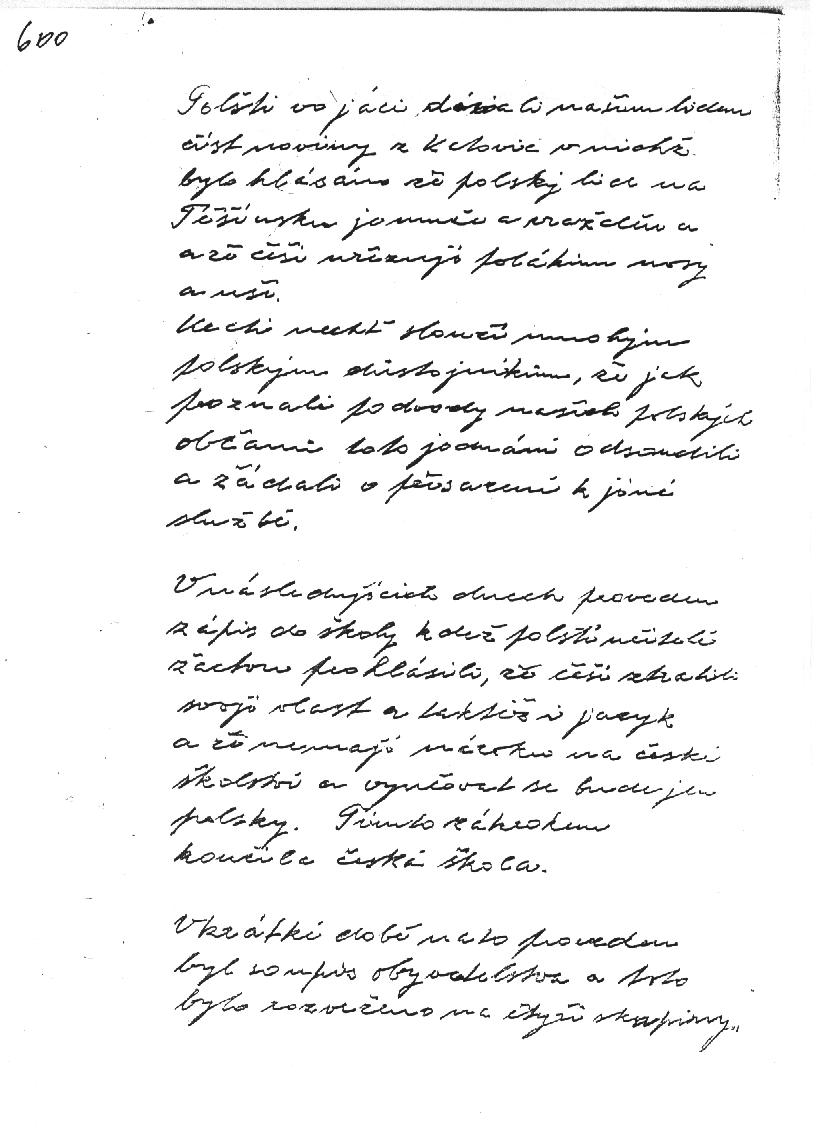 600
Polští vojáci dávali našim lidem
číst noviny z Katovic v nichž
bylo hlásáno že polský lid na
Těšínsku jest a vražděn a
a že češi uřezují polákům nosy
a uši.
Ke cti nechť slouží mnohým
polským důstojníkům, že jak
poznali podvody našich polských
občanů toto jednání odsoudili
a žádali o přeřazení k jiné
službě.
V následujících dnech proveden
zápis do školy kdež polští učitelé
žactvu prohlásili, že češi ztratili
svoji vlast a taktéž i jazyk
a že nemají nároku na české
školství a vyučovat se bude jen
polsky. Tímto zákrokem
končila česká škola.
V krátké době na to proveden
byl soupis obyvatelstva a toto
bylo rozvrženo na čtyři skupiny.